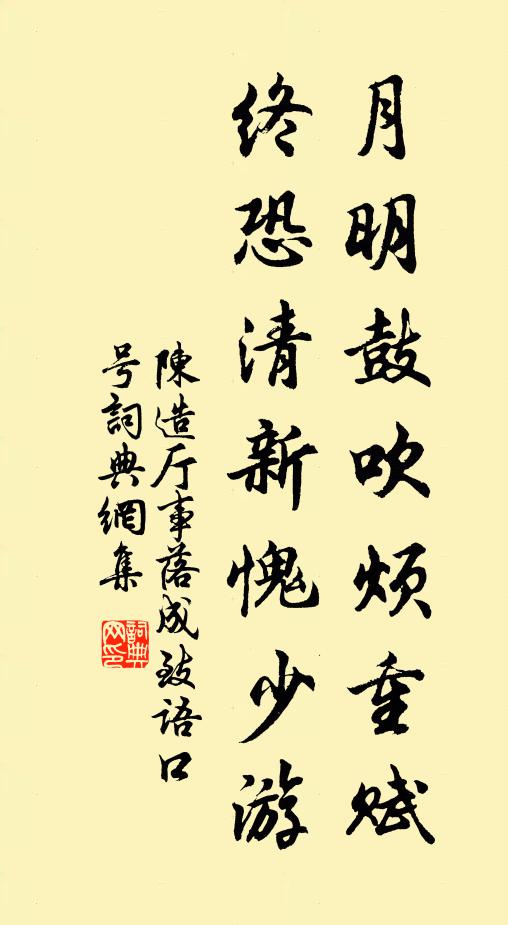 月明鼓吹烦重赋
终恐清新愧少游
陳造厅事落成致语口
号詞典網集
詞典网印